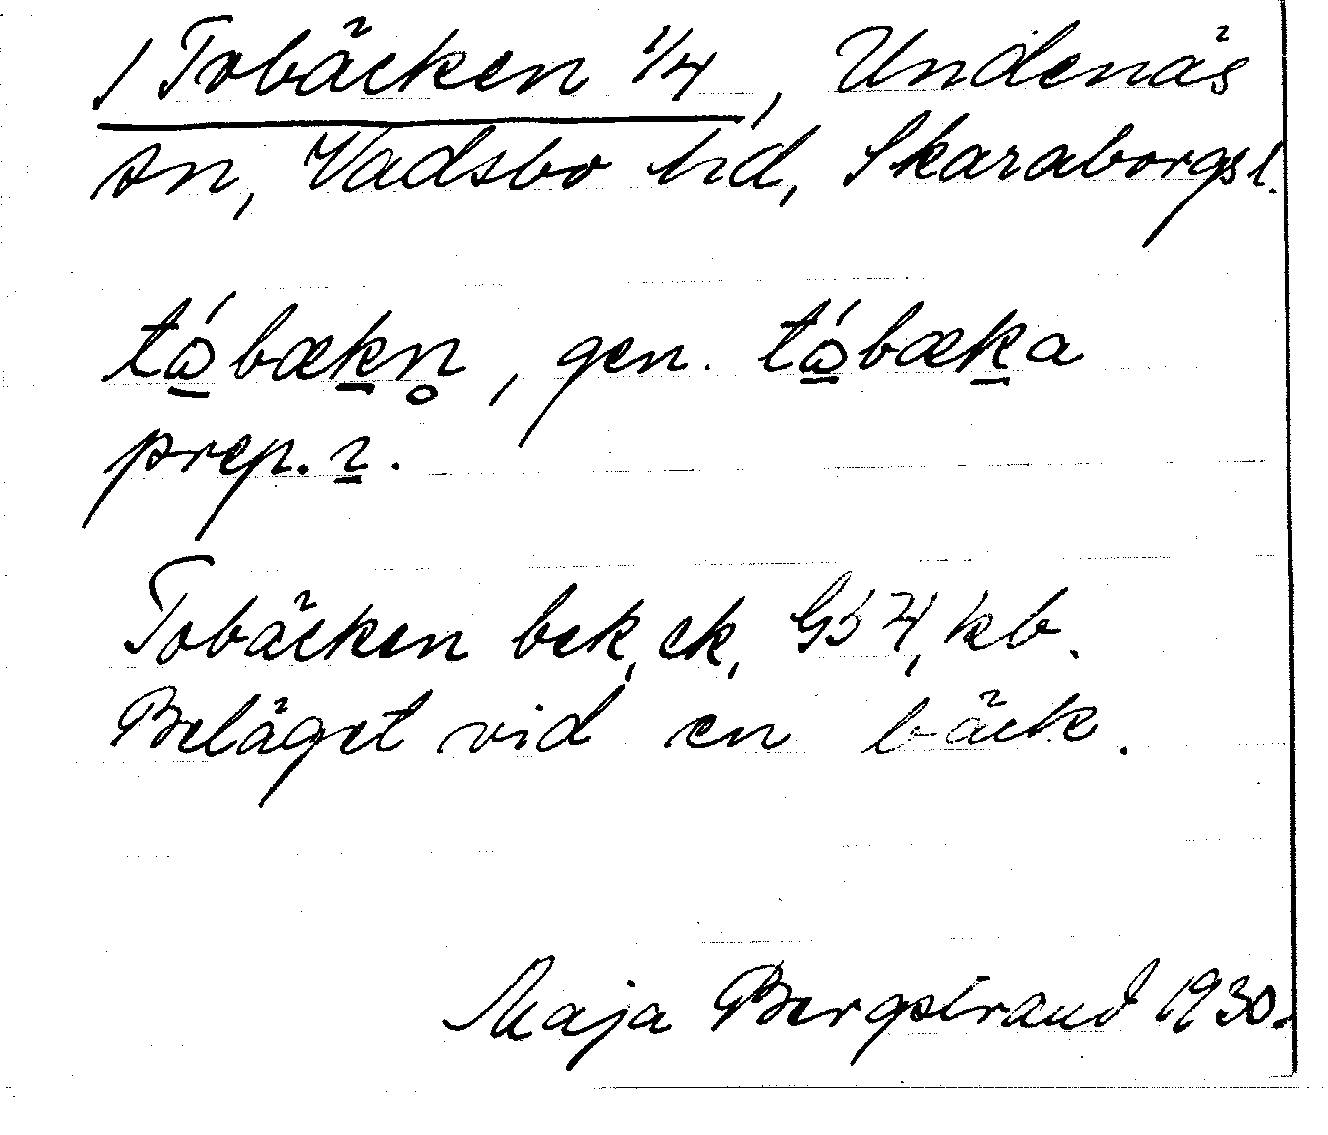 / Tobäcken 1/4, Undenäs
sn, Vadsbo hd, Skaraborgs l.
tóbækn̥, gen. tóbæka
prep. ɿ.
Tobäcken bek, ek, GS4, kb.
Beläget vid en bäck.
Maja Bergstrand 1930.